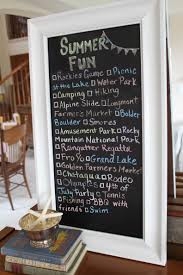 SUMMER
FUN
□ Rockies Game □ Picnic
at the Lake □ Water Park
□ Camping □ Hiking
□ Alpine Slide □ Longmont
Farmer's Market □ Boulder
Boulder □ Smores
□ Amusement Park □ Rocky
Mountain National Park
□ Raingutter Regatta
□ Fro Yo □ Grand Lake
□ Golden Farmers Market
□ Chataqua □ Rodeo
□ Olympics □ 4th of
July Party □ Tennis
□ Fishing □ BBQ with
friends □ Swim